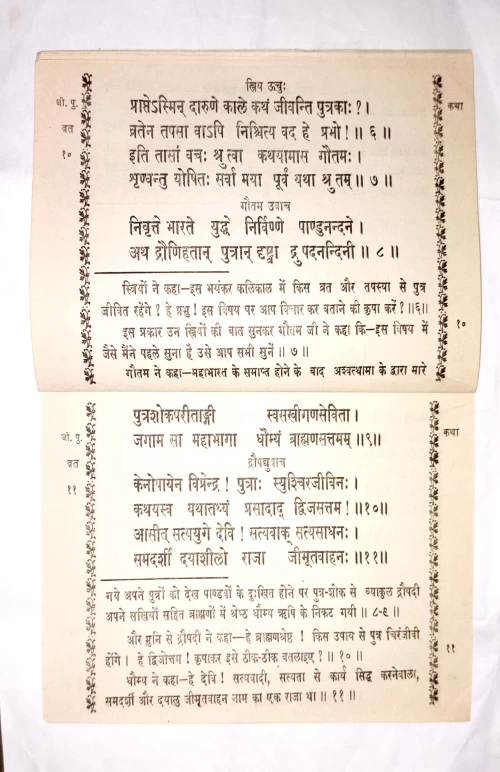 स्त्रिय ऊचुः
श्री. पु.
व्रत
१०
कथा
प्राप्तेऽस्मिन् दारुणे काले कथं जीवन्ति पुत्रकाः ? ।
व्रतेन तपसा वाऽपि निश्चित्य वद हे प्रभो ! ॥ ६ ॥
इति तासां वचः श्रुत्वा कथयामास गौतमः ।
शृण्वन्तु योषितः सर्वा मया पूर्वं यथा श्रुतम् ॥ ७ ॥
गौतम उवाच
निवृत्ते भारते युद्धे निर्विण्णे पाण्डुनन्दने ।
अथ द्रौणिहतान् पुत्रान् दृष्ट्वा द्रुपदनन्दिनी ॥ ८ ॥
स्त्रियों ने कहा—इस भयंकर कलिकाल में किस व्रत और तपस्या से पुत्र
जीवित रहेंगे ? हे प्रभु ! इस विषय पर आप विचार कर बताने की कृपा करें ! ॥६॥
इस प्रकार उन स्त्रियों की बात सुनकर गौतम जी ने कहा कि—इस विषय में
जैसे मैंने पहले सुना है उसे आप सभी सुनें ॥ ७ ॥
१०
गौतम ने कहा—महाभारत के समाप्त होने के बाद अश्वत्थामा के द्वारा मारे
पुत्रशोकपरीताङ्गी स्वसखीगणसेविता ।
जगाम सा महाभागा धौम्यं ब्राह्मणसत्तमम् ॥९॥
जी. पु.
व्रत
११
कथा
द्रौपद्युवाच
केनोपायेन विप्रेन्द्र ! पुत्राः स्युश्चिरजीविनः ।
कथयस्व यथातथ्यं प्रसादाद् द्विजसत्तम ! ॥१०॥
आसीत् सत्ययुगे देवि ! सत्यवाक् सत्यसाधनः ।
समदर्शी दयाशीलो राजा जीमूतवाहनः ॥११॥
गये अपने पुत्रों को देख पाण्डवों के दुःखित होने पर पुत्र-शोक से व्याकुल द्रौपदी
अपने सखियों सहित ब्राह्मणों में श्रेष्ठ धौम्य ऋषि के निकट गयी ॥ ८-९ ॥
और मुनि से द्रौपदी ने कहा—हे ब्राह्मणश्रेष्ठ ! किस उपाय से पुत्र चिरंजीवी
होंगे । हे द्विजोत्तम ! कृपाकर इसे ठीक-ठीक बतलाइए ? ॥ १० ॥
११
धौम्य ने कहा—हे देवि ! सत्यवादी, सत्यता से कार्य सिद्ध करनेवाला,
समदर्शी और दयालु जीमूतवाहन नाम का एक राजा था ॥ ११ ॥